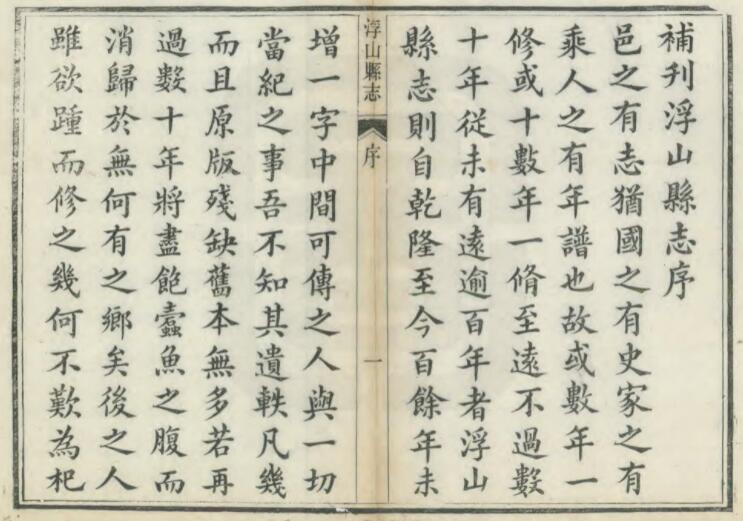 補刋浮山縣志序
邑之有志猶國之有史家之有
乘人之有年譜也故或數年一
修或十數年一脩至遠不過數
十年從未有遠逾百年者浮山
縣志則自乾隆至今百餘年未
浮山縣志
序
一
增一字中間可傳之人與一切
當紀之事吾不知其遺軼凡幾
而且原版殘缺舊本無多若再
過數十年將盡飽蠹魚之腹而
消歸於無何有之鄉矣後之人
雖欲踵而修之幾何不歎為杞